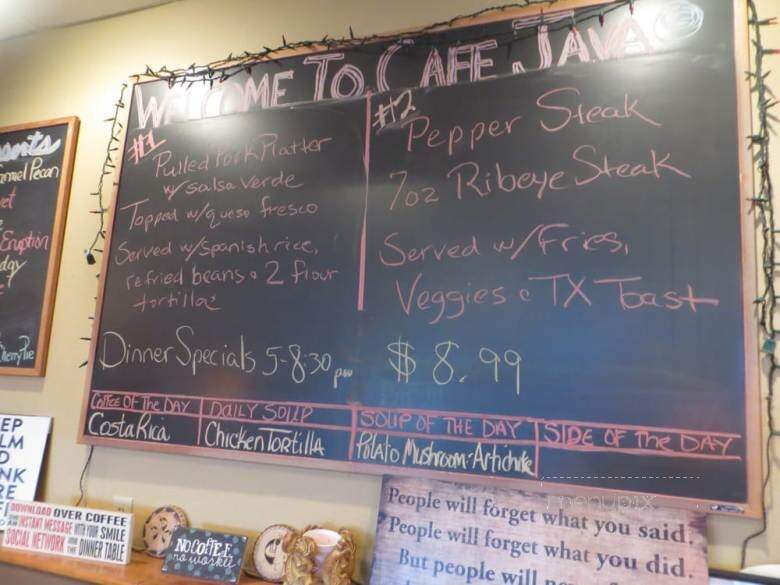 WELCOME TO CAFE JAVA
#1
Pulled Pork Platter
w/ salsa verde
Topped w/queso fresco
Served w/Spanish rice,
refried beans & 2 flour
tortillas
#2
Pepper Steak
7oz Ribeye Steak
Served w/Fries,
Veggies & TX Toast
Dinner Specials 5-8:30 pm $8.99
COFFEE OF THE DAY
Costa Rica
DAILY SOUP
Chicken Tortilla
SOUP OF THE DAY
Potato Mushroom-Artichike
SIDE OF THE DAY
Pecan
Eruption
Cherry Pie
DOWNLOAD OVER COFFEE
INSTANT MESSAGE WITH YOUR SMILE
SOCIAL NETWORK DINNER TABLE
NO COFFEE
no workee
People will forget what you said.
People will forget what you did.
But people will
menupix